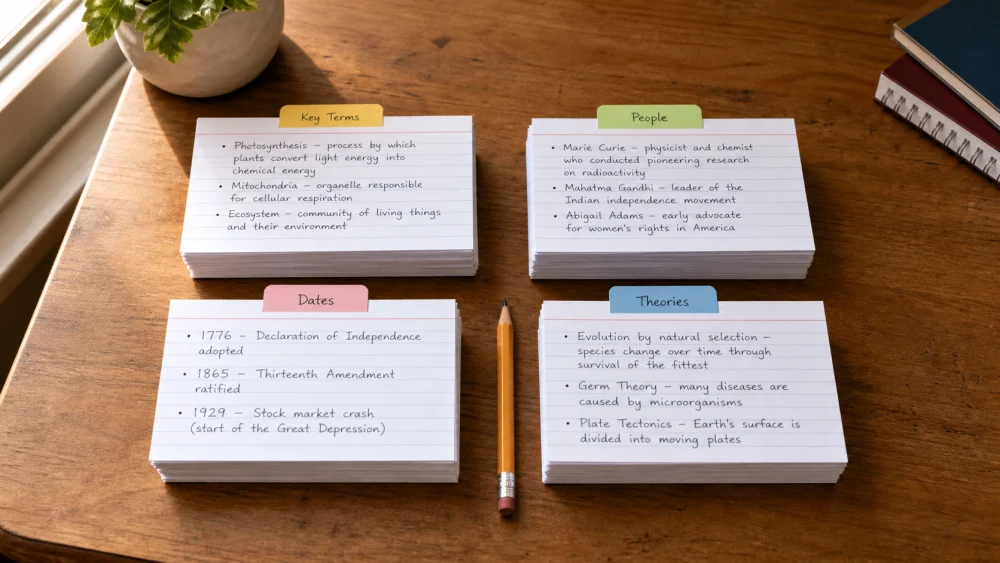 Key Terms
• Photosynthesis – process by which
plants convert light energy into
chemical energy
• Mitochondria – organelle responsible
for cellular respiration
• Ecosystem – community of living things
and their environment
People
• Marie Curie – physicist and chemist
who conducted pioneering research
on radioactivity
• Mahatma Gandhi – leader of the
Indian independence movement
• Abigail Adams – early advocate
for women's rights in America
Dates
• 1776 – Declaration of Independence
adopted
• 1865 – Thirteenth Amendment
ratified
• 1929 – Stock market crash
(start of the Great Depression)
Theories
• Evolution by natural selection –
species change over time through
survival of the fittest
• Germ Theory – many diseases are
caused by microorganisms
• Plate Tectonics – Earth's surface is
divided into moving plates